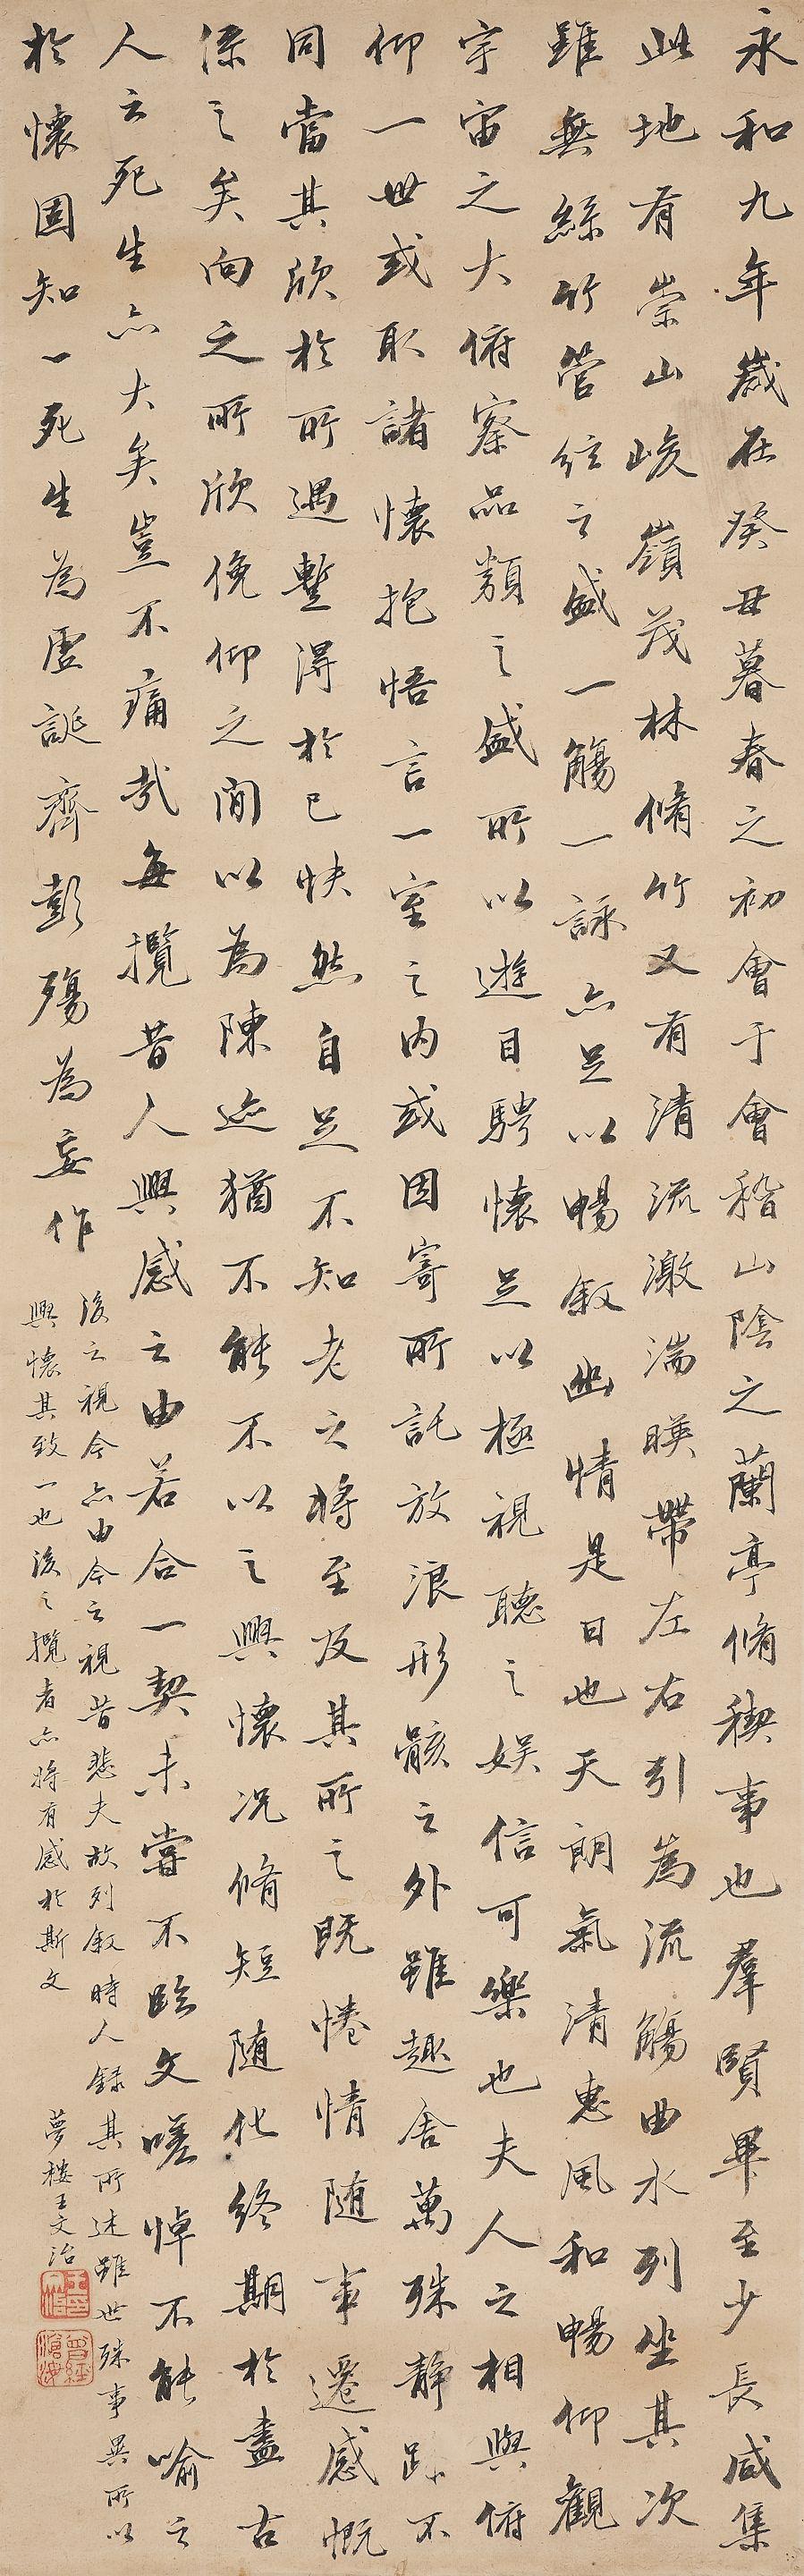 永和九年歲在癸丑暮春之初會于會稽山陰之蘭亭脩稧事也羣賢畢至少長咸集
此地有崇山峻嶺茂林脩竹又有清流激湍暎帶左右引為流觴曲水列坐其次
雖無絲竹管絃之盛一觴一詠亦足以暢叙幽情是日也天朗氣清惠風和暢仰觀
宇宙之大俯察品類之盛所以遊目騁懷足以極視聽之娛信可樂也夫人之相與俯
仰一世或取諸懷抱悟言一室之內或因寄所託放浪形骸之外雖趣舍萬殊静躁不
同當其欣於所遇暫得於己快然自足不知老之將至及其所之既惓情隨事遷感慨
係之矣向之所欣俛仰之間以為陳迹猶不能不以之興懷況脩短隨化終期於盡古
人云死生亦大矣豈不痛哉每攬昔人興感之由若合一契未嘗不臨文嗟悼不能喻之
於懷固知一死生為虛誕齊彭殤為妄作
後之視今亦由今之視昔悲夫故列叙時人録其所述雖世殊事異所以
興懷其致一也後之攬者亦將有感於斯文
夢樓王文治
王文治印
曾經滄海